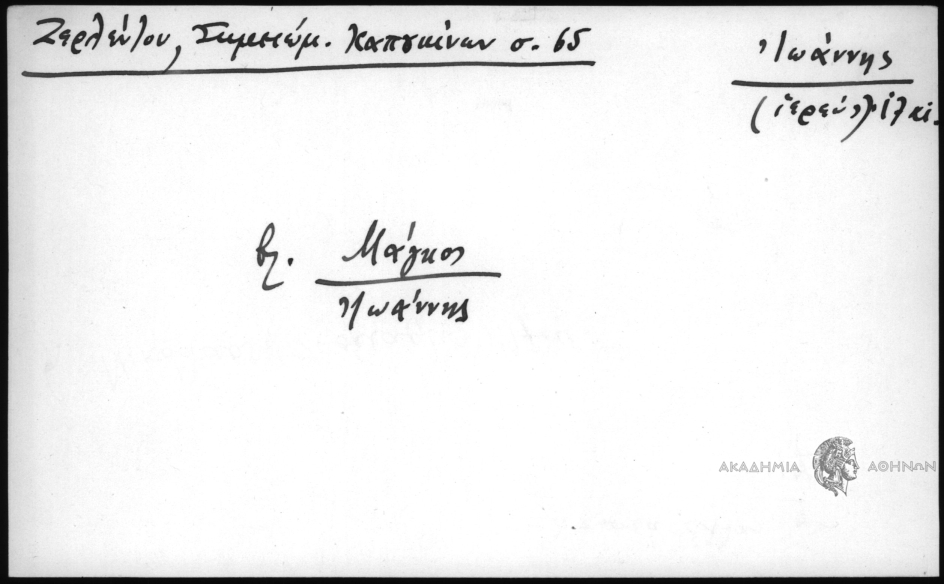 Ζερλέντου, Σημειώμ. Καπουκίνων σ. 65
Ἰωάννης
(ἱερεύς)
βλ. Μάγκος
Ἰωάννης
ΑΚΑΔΗΜΙΑ ΑΘΗΝΩΝ